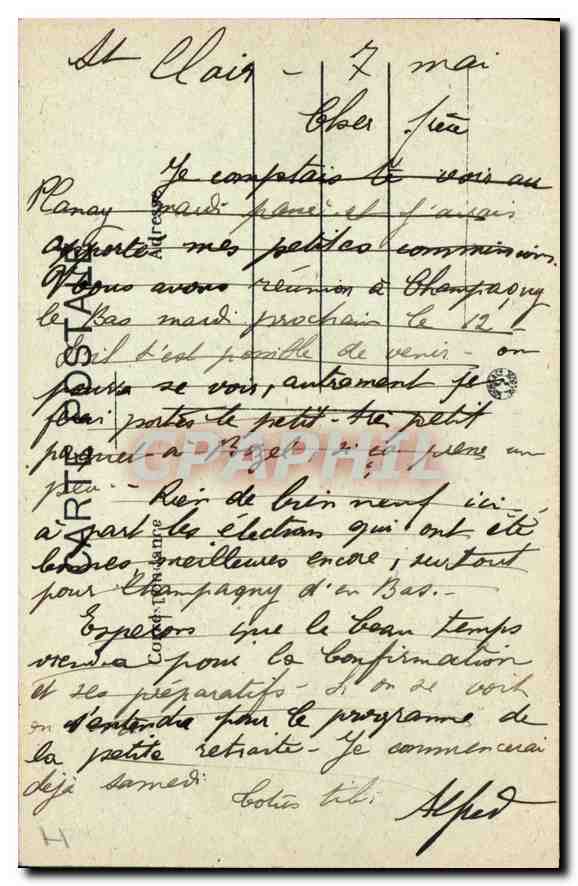 St Clair - 7 mai
Cher frère
Je comptais te voir au
Planay mardi passé et j'avais
apporté mes petites commissions.
Nous avons réunion à Champagny
le Bas mardi prochain le 12 -
S'il t'est possible de venir - on
pourra se voir, autrement je
ferai porter le petit - très petit
paquet à Bozel - si ça presse un
peu. -
Rien de bien neuf ici
à part les élections qui ont été
bonnes, meilleures encore, surtout
pour Champagny d'en Bas. -
Espérons que le beau temps
viendra pour la Confirmation
et ses préparatifs - Si on se voit
on s'entendra pour le programme de
la petite retraite - Je commencerai
déjà samedi
Totus tibi
Alfred
CARTE POSTALE
Correspondance
Adresse
CPAPHIL